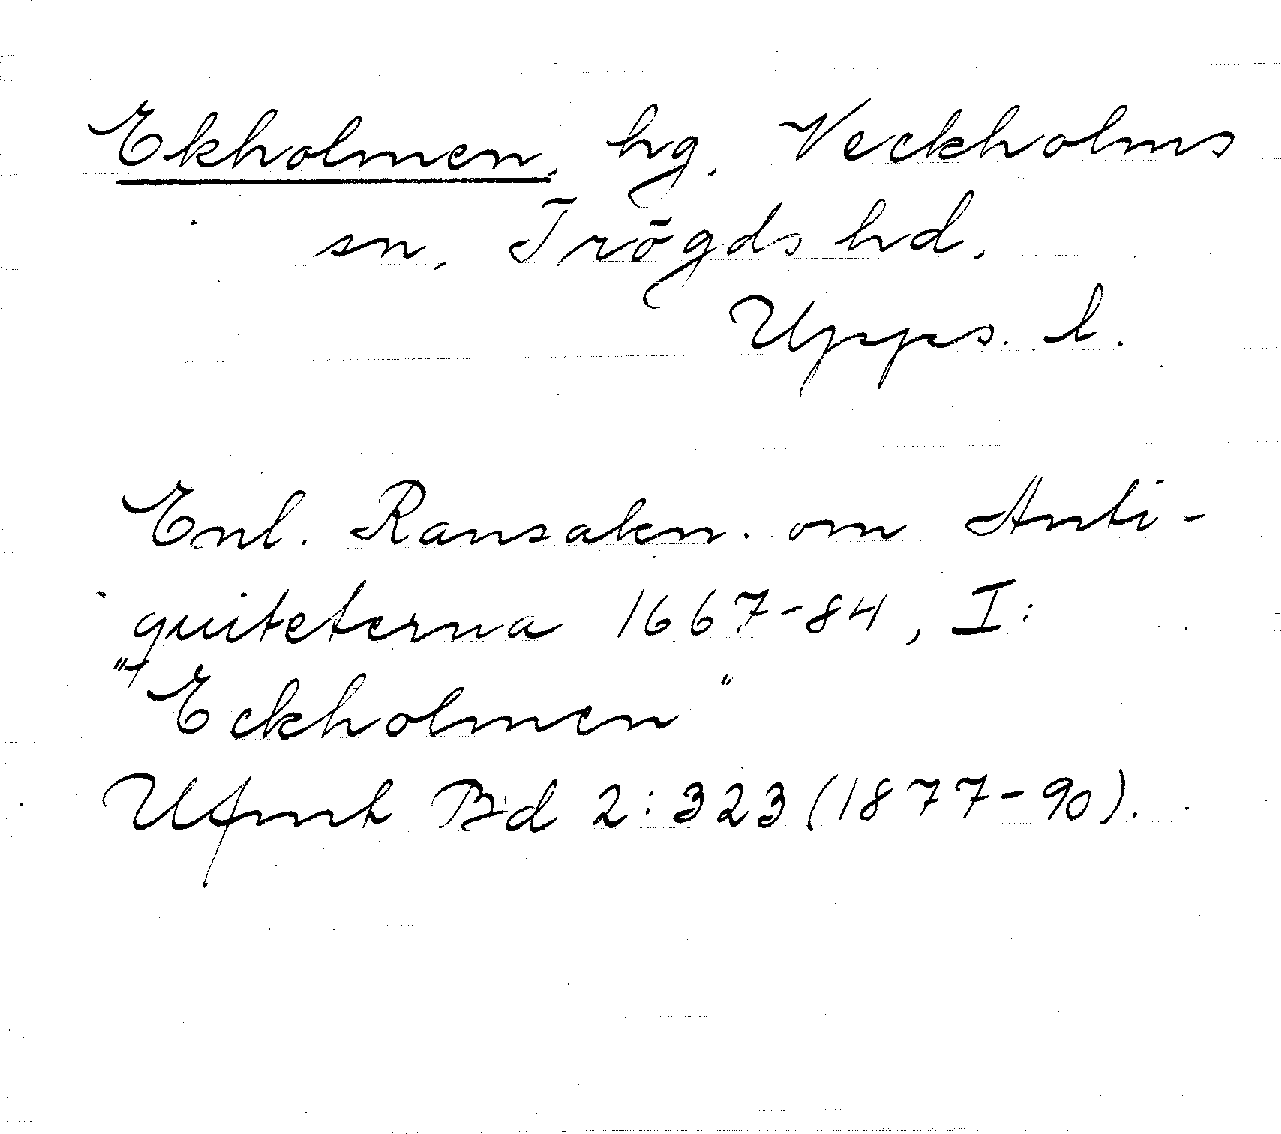 Ekholmen, hg, Veckholms
sn, Trögds hd,
Upps. l.
Enl. Ransakn. om Anti-
quiteterna 1667-84, I:
"Eckholmen"
Ufmt Bd 2:323 (1877-90).